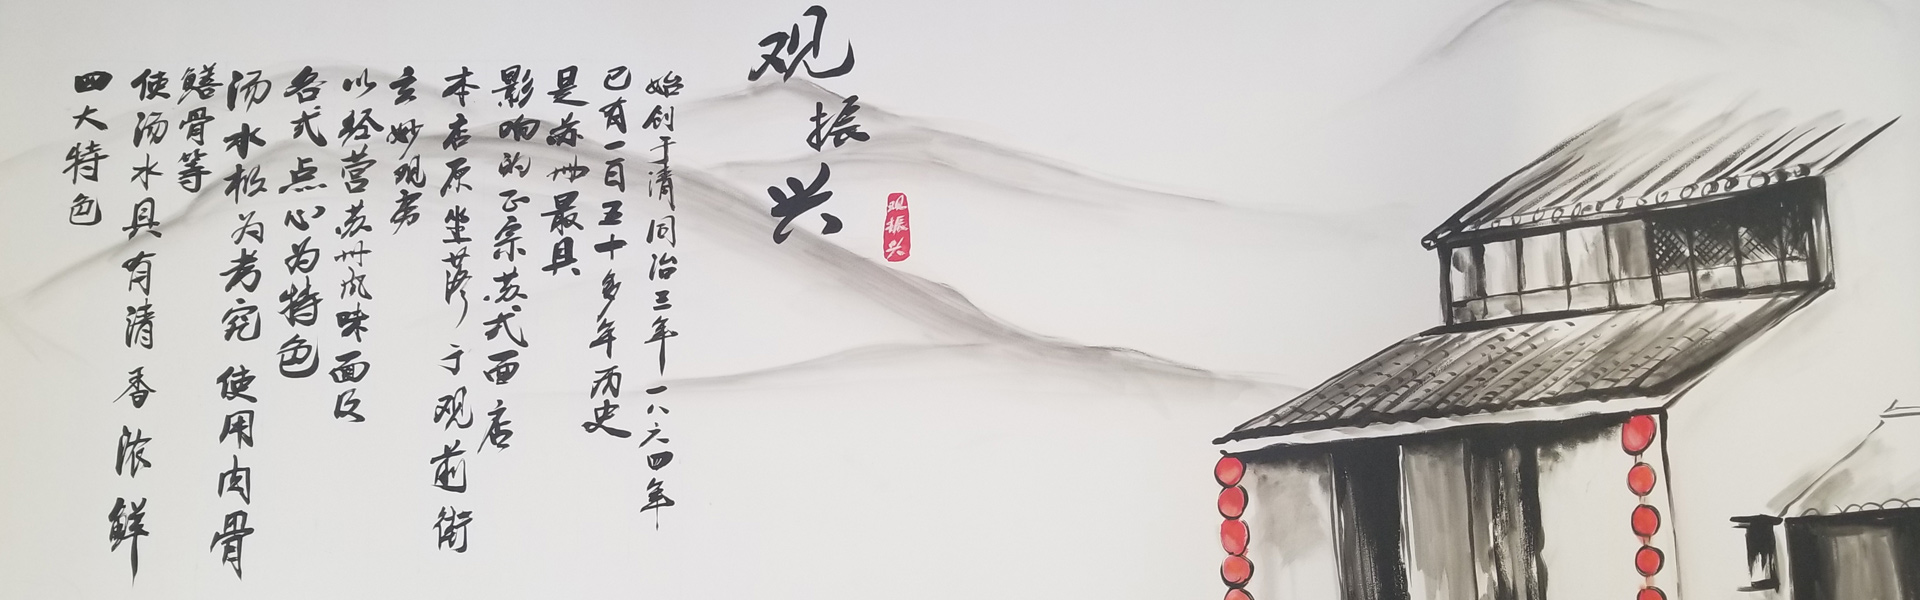 观振兴
观振兴
始创于清同治三年一八六四年
已有一百五十多年历史
是苏州最具
影响的正宗苏式面店
本店原坐落于观前街
玄妙观旁
以经营苏州风味面及
各式点心为特色
汤水极为考究使用肉骨
鳝骨等
使汤水具有清香浓鲜
四大特色